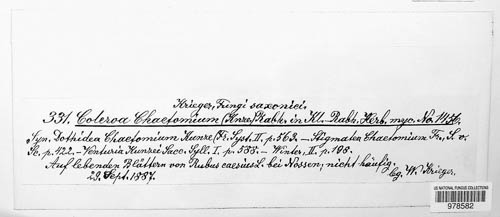 Krieger, Fungi saxonici.
331. Coleroa Chaetomium (Kunze) Rabh. in Kl.-Rabh. Herb. myc. No. 1456.
Syn. Dothidea Chaetomium Kunze, Fr. Syst. II, p. 563. – Stigmatea Chaetomium Fr., S. v.
Sc. p. 422. – Venturia Kunzei Sacc. Syll. I. p. 588. – Winter, II. p. 198.
Auf lebenden Blättern von Rubus caesius L. bei Nossen; nicht häufig.
28. Sept. 1887. leg. W. Krieger.
US NATIONAL FUNGUS COLLECTIONS
978582